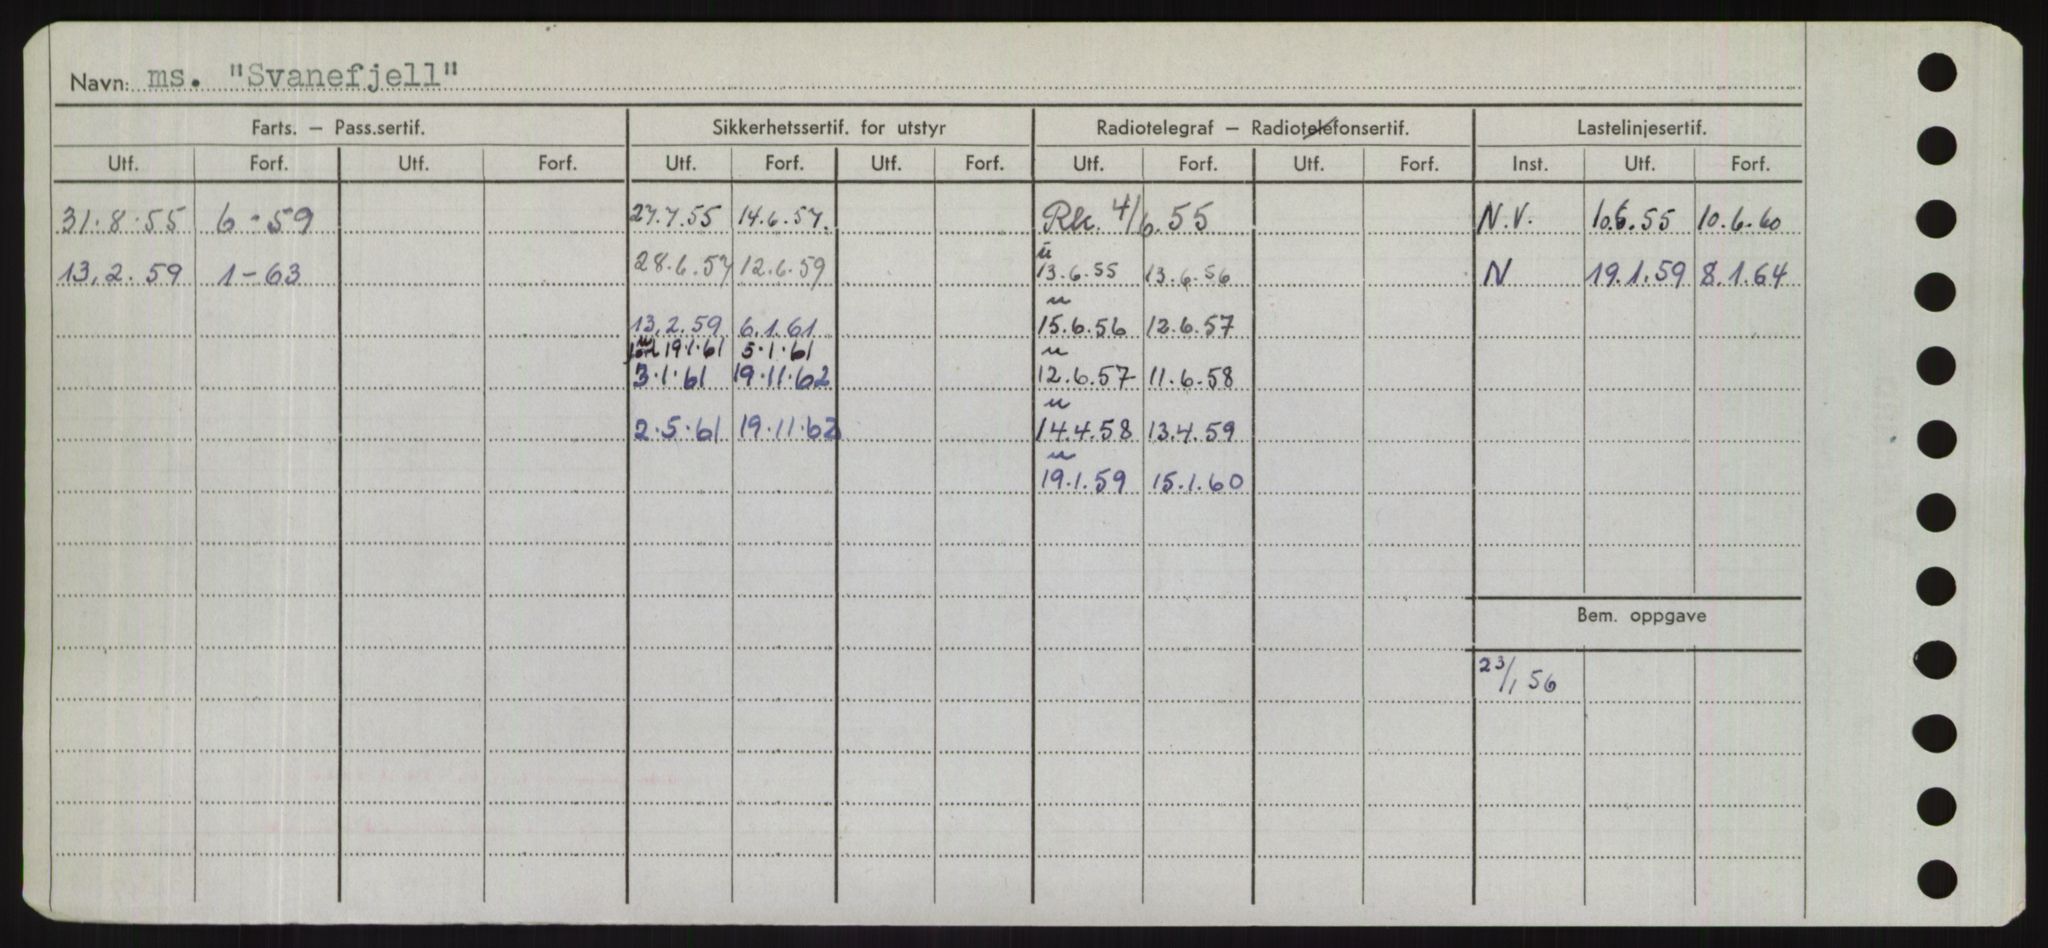 Navn: ms. "Svanefjell"
Farts. – Pass.sertif. Sikkerhetssertif. for utstyr Radiotelegraf – Radiotelefonsertif. Lastelinjesertif.
Utf. Forf. Utf. Forf. Utf. Forf. Utf. Forf. Utf. Forf. Utf. Forf. Inst. Utf. Forf.
31.8.55 6-59 27.7.55 14.6.57. Rk. 4/6.55 N.V. 10.6.55 10.6.60
u
13.2.59 1-63 28.6.57 12.6.59 13.6.55 13.6.56 N 19.1.59 8.1.64
u
13.2.59 6.1.61 15.6.56 12.6.57
u u
19.1.61 5.1.61
3.1.61 19.11.62 12.6.57 11.6.58
u
2.5.61 19.11.62 14.4.58 13.4.59
u
19.1.59 15.1.60
Bem. oppgave
23/1 56